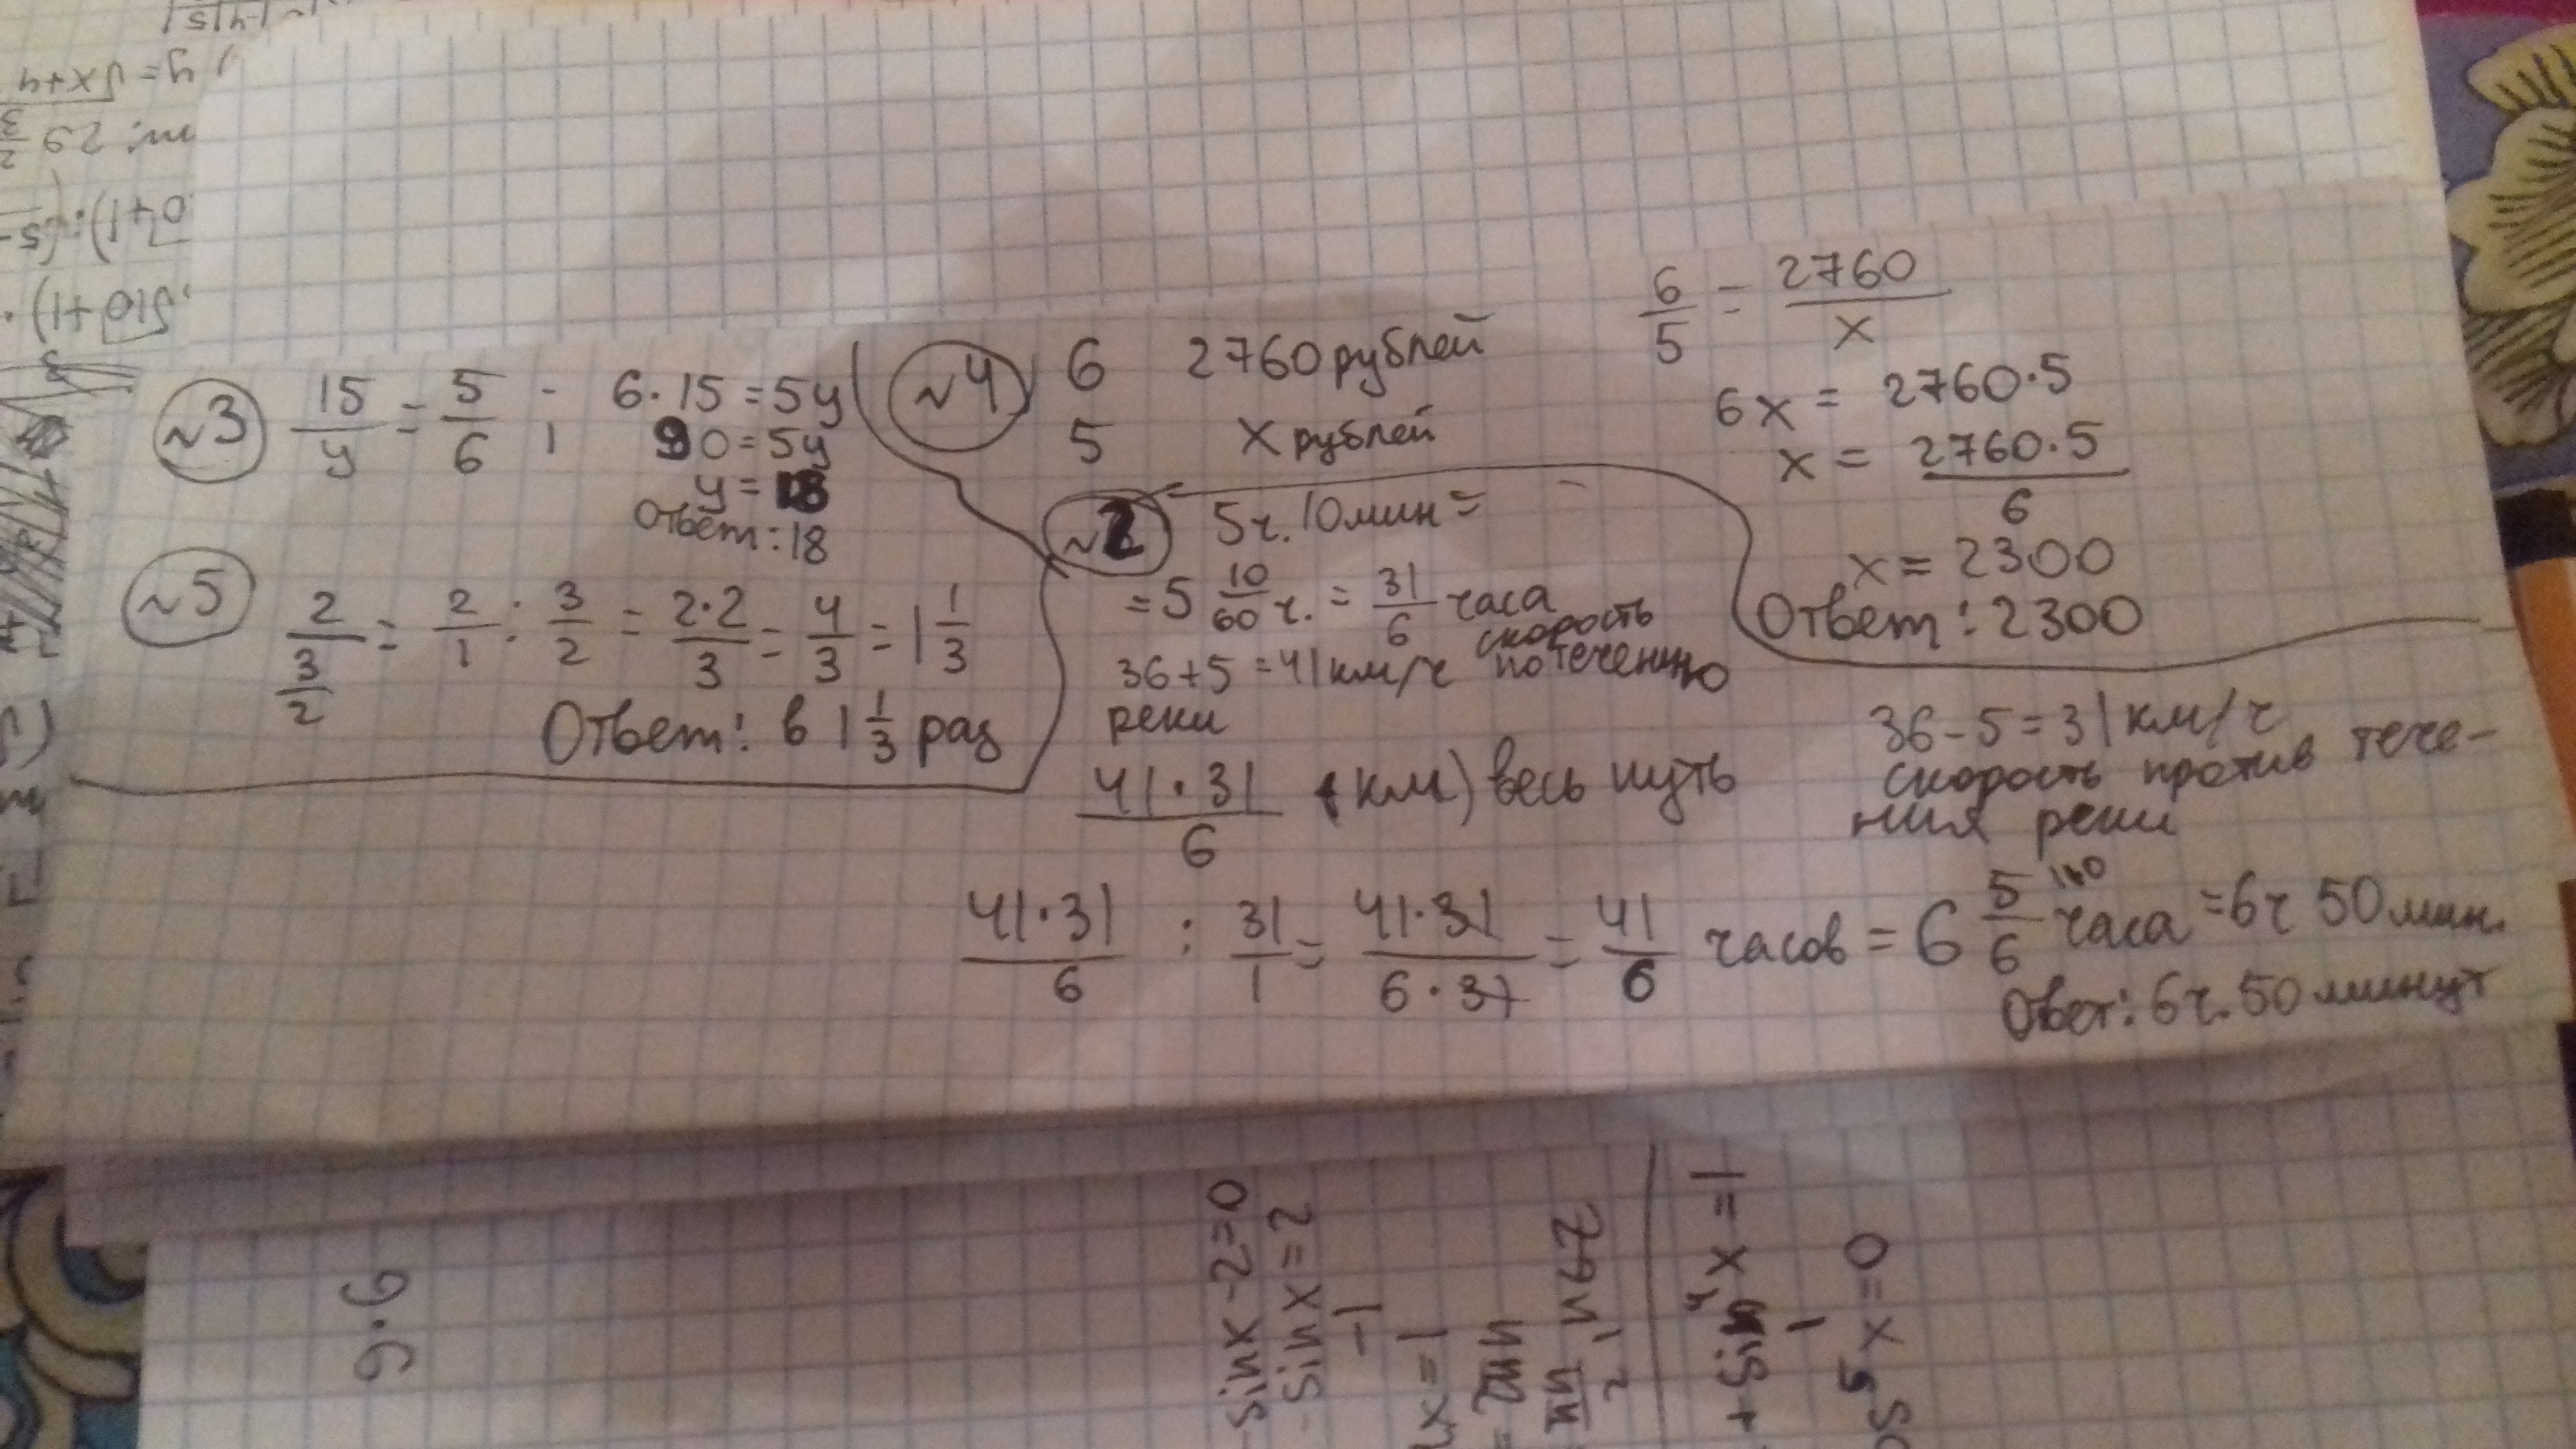 №3 15/y = 5/6 ; 6·15=5y
90=5y
y=18
Ответ: 18
№5 2/(3/2) = 2/1 : 3/2 = 2·2/3 = 4/3 = 1 1/3
Ответ: в 1 1/3 раз
№4 6 2760 рублей
5 x рублей
6/5 = 2760/x
6x = 2760·5
x = 2760·5/6
x = 2300
Ответ: 2300
№2 5ч. 10мин =
= 5 10/60 ч. = 31/6 часа
36+5=41км/ч скорость по течению
реки
41·31/6 (км) весь путь
36-5=31км/ч
скорость против тече-
ния реки
41·31/6 : 31/1 = 41·31/6·31 = 41/6 часов = 6 5/6 часа = 6ч 50 мин.
Ответ: 6ч. 50 минут
y=√x+4
√10+1)
sinx-2=0
-sinx=2
-1
x=1
x=1
x=0